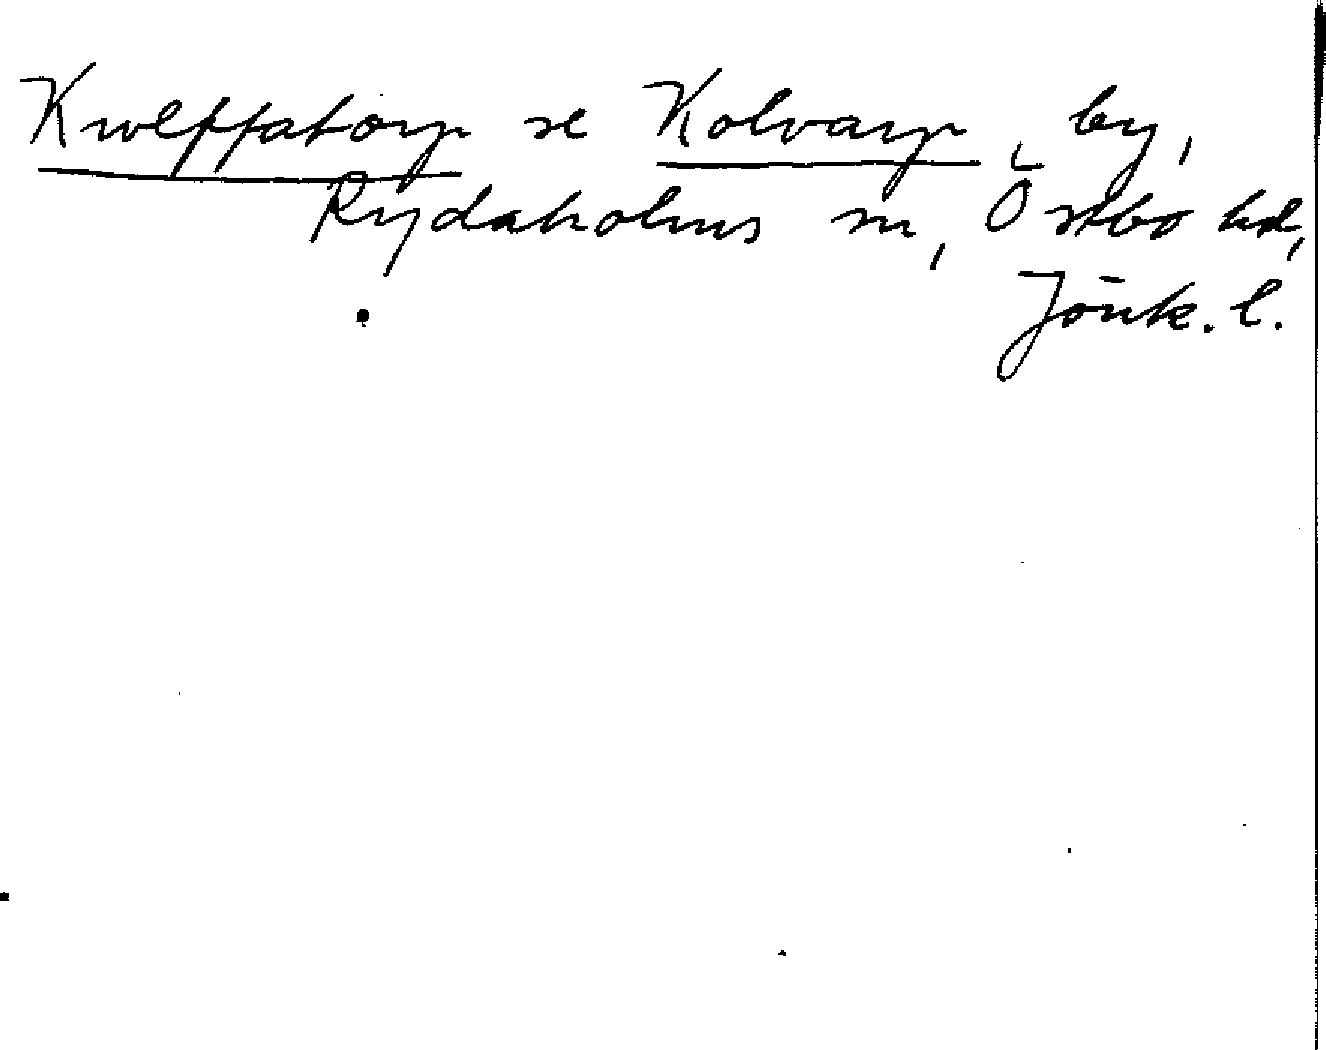 Kwlffatorp se Kolvarp, by,
Rydaholms sn, Östbo hd,
Jönk. l.